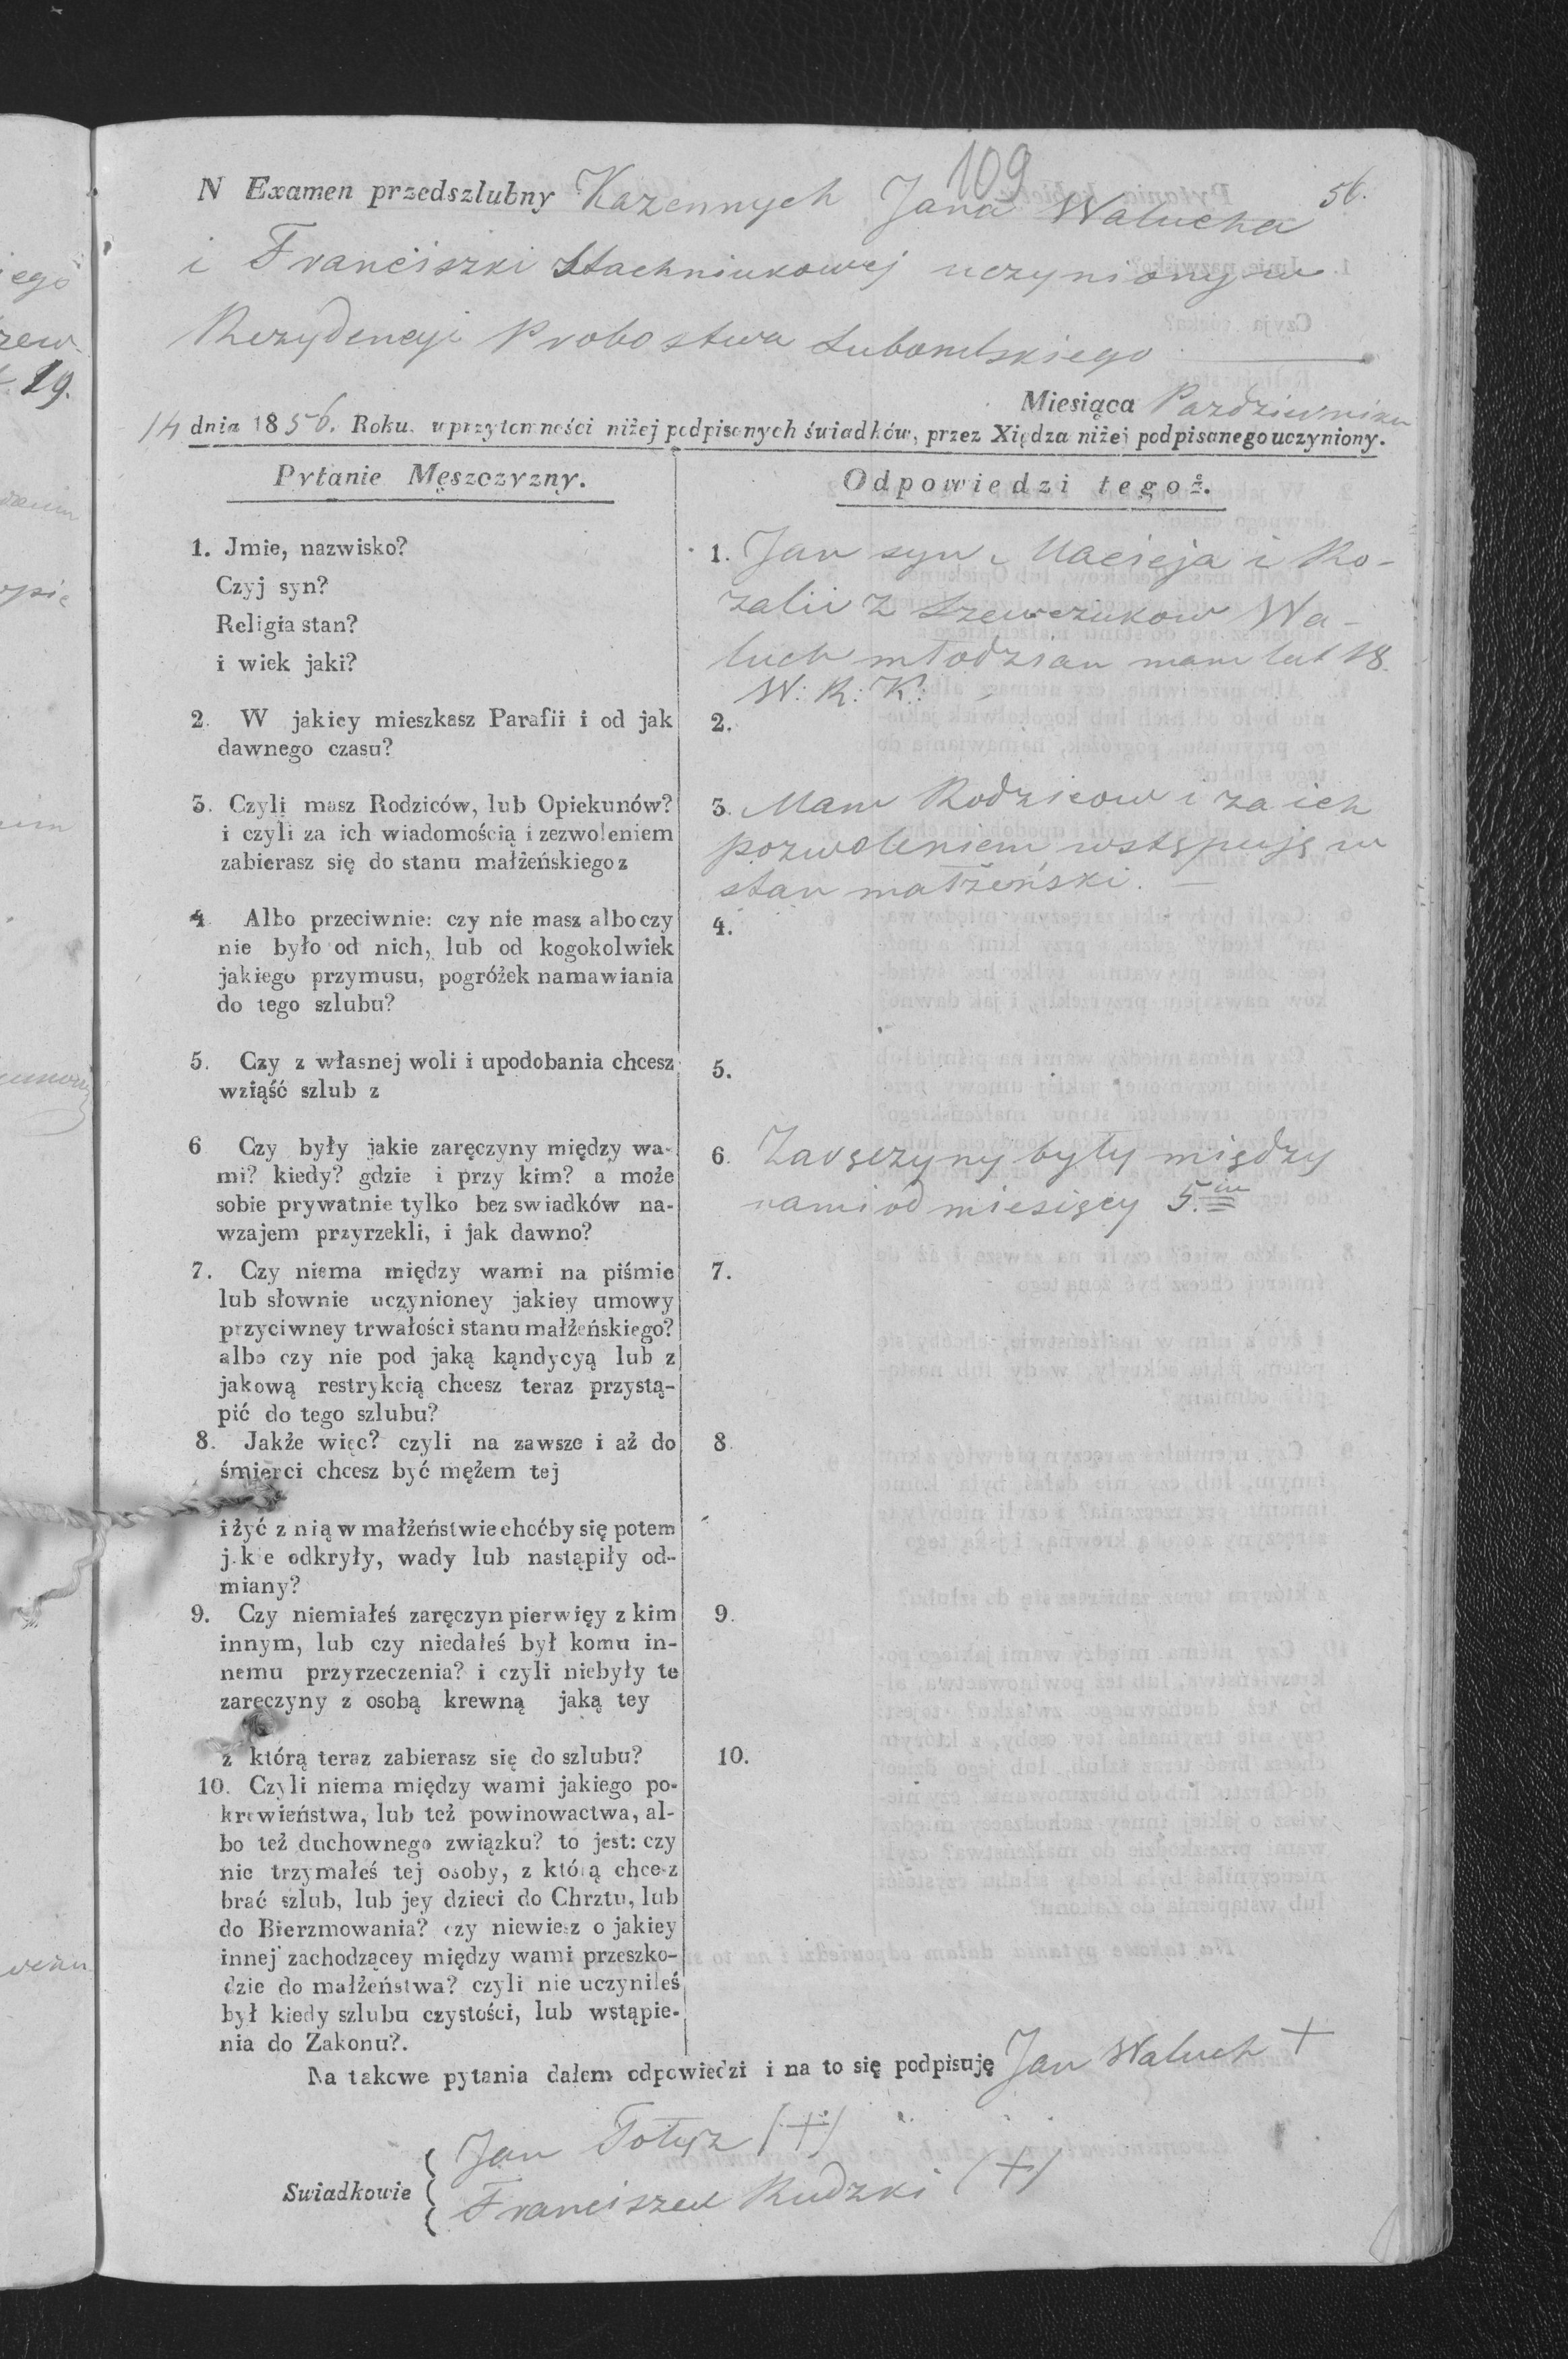 109
N Examen przedszlubny Kazennych Jana Walucha 56.
i Franciszki Stachniukowej uczyniony w
Rezydencyi Probostwa Lubomlskiego
Miesiąca Pazdziernika
14 dnia 1856. Roku. w przytomności niżej podpisanych świadków, przez Xiędza niżei podpisanego uczyniony.
Pytanie Męszczyzny.
Odpowiedzi tegoż.
1. Jmie, nazwisko?
Czyj syn?
Religia stan?
i wiek jaki?
1. Jan syn Macieja i Ro-
zalii z Szewczukow Wa-
luch młodzian mam lat 18.
W: R: K:
2. W jakiey mieszkasz Parafii i od jak
dawnego czasu?
2.
3. Czyli masz Rodziców, lub Opiekunów?
i czyli za ich wiadomością i zezwoleniem
zabierasz się do stanu małżeńskiego z
3. Mam Rodzicow i za ich
pozwoleniem wstępuję w
stan małżeński.
4 Albo przeciwnie: czy nie masz albo czy
nie było od nich, lub od kogokolwiek
jakiego przymusu, pogróżek namawiania
do tego szlubu?
4.
5. Czy z własnej woli i upodobania chcesz
wziąść szlub z
5.
6 Czy były jakie zaręczyny między wa-
mi? kiedy? gdzie i przy kim? a może
sobie prywatnie tylko bez swiadków na-
wzajem przyrzekli, i jak dawno?
6. Zaręczyny były między
nami od miesięcy 5.iu
7. Czy niema między wami na piśmie
lub słownie uczynioney jakiey umowy
przyciwney trwałości stanu małżeńskiego?
albo czy nie pod jaką kąndycyą lub z
jakową restrykcią chcesz teraz przystą-
pić do tego szlubu?
7.
8. Jakże więc? czyli na zawsze i aż do
śmierci chcesz być mężem tej
i żyć z nią w małżeństwie choćby się potem
j.k e odkryły, wady lub nastąpiły od-
miany?
8.
9. Czy niemiałeś zaręczyn pierwięy z kim
innym, lub czy niedałeś był komu in-
nemu przyrzeczenia? i czyli niebyły te
zaręczyny z osobą krewną jaką tey
z którą teraz zabierasz się do szlubu?
9.
10. Czyli niema między wami jakiego po-
krewieństwa, lub też powinowactwa, al-
bo też duchownego związku? to jest: czy
nie trzymałeś tej osoby, z którą chcesz
brać szlub, lub jey dzieci do Chrztu, lub
do Bierzmowania? czy niewiesz o jakiey
innej zachodzącey między wami przeszko-
dzie do małżeństwa? czyli nie uczyniłeś
był kiedy szlubu czystości, lub wstąpie-
nia do Zakonu?.
10.
Na takowe pytania dałem odpowiedzi i na to się podpisuję Jan Waluch +
Swiadkowie
Jan (+)
Franciszek Rudzki (+)